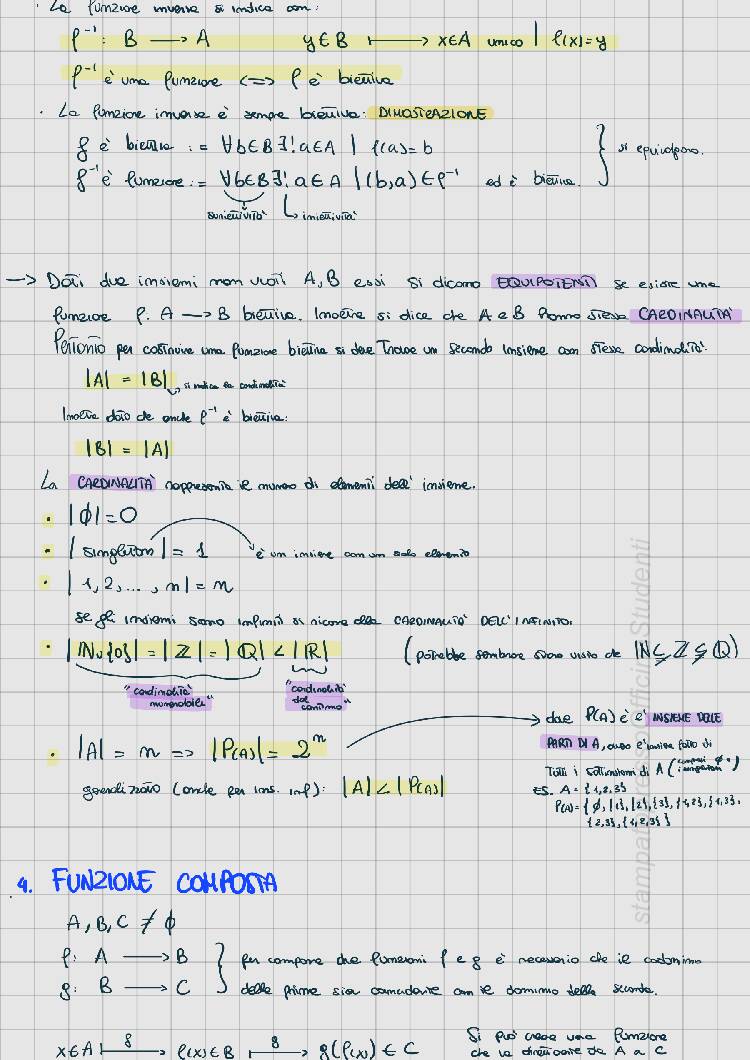 · La funzione inversa si indica con:
f⁻¹: B → A y∈B ↦ x∈A unico | f(x)=y
f⁻¹ è una funzione <=> f è biettiva
· La funzione inversa è sempre biettiva: DIMOSTRAZIONE
f è biettiva := ∀b∈B ∃! a∈A | f(a)=b
si equivalgono.
f⁻¹ è funzione := ∀b∈B ∃! a∈A | (b,a) ∈ f⁻¹ ed è biettiva.
suriettività iniettività
→ Dati due insiemi non vuoti A,B essi si dicono EQUIPOTENTI se esiste una
funzione f: A → B biettiva. Inoltre si dice che A e B hanno stessa CARDINALITÀ
Pertanto per costruire una funzione biettiva si deve trovare un secondo insieme con stessa cardinalità.
|A| = |B| si indica la cardinalità
Inoltre dato che anche f⁻¹ è biettiva:
|B| = |A|
La CARDINALITÀ rappresenta il numero di elementi dell'insieme.
· |∅| = 0
· | singleton | = 1 è un insieme con un solo elemento
· | 1,2,..., n | = n
se gli insiemi sono infiniti si ricorre alla CARDINALITÀ DELL'INFINITO.
· |N∪{0}| = |Z| = |Q| < |R| (potrebbe sembrare strano visto che N⊊Z⊊Q)
"cardinalità numerabile" "cardinalità del continuo"
· |A| = n => |P(A)| = 2ⁿ
→ dove P(A) è l'INSIEME DELLE
PARTI DI A, ovvero l'insieme fatto di
Tutti i sottinsiemi di A (compresi ∅ e i singleton)
generalizzato (anche per ins. inf): |A| < |P(A)|
ES. A = {1,2,3}
P(A) = {∅, {1}, {2}, {3}, {1,2}, {1,3},
{2,3}, {1,2,3}}
stampato presso Officina Studenti
4. FUNZIONE COMPOSTA
A, B, C ≠ ∅
f: A → B per comporre due funzioni f e g è necessario che il codominio
g: B → C della prima sia coincidente con il dominio della seconda.
x∈A ↦ f f(x)∈B ↦ g g(f(x)) ∈ C
Si può creare una funzione
che va direttamente da A a C